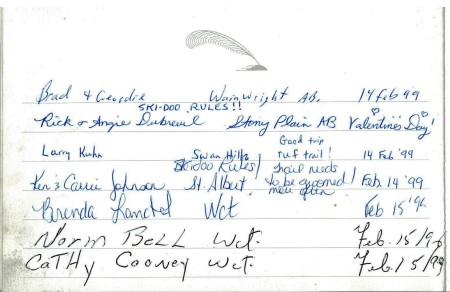 Brad & Geordie Wainwright AB. 14 Feb 99
SKI-DOO RULES!!
Rick & Angie Dubreuil Stony Plain AB Valentines Day!
Larry Kuhn Swan Hills Good trip ruf trail! 14 Feb '99
Skidoo Rules/ trail needs
Ken & Carrie Johnson St. Albert to be groomed more often / Feb. 14 '99
Brenda Wct Feb 15
Norm Bell Wct. Feb. 15/9
Cathy Cooney Wct. Feb. 15/99